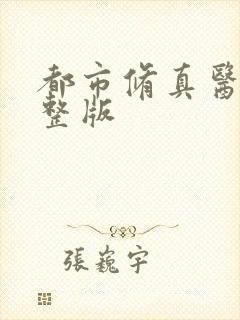 都市脩真醫
整版
張巍宇